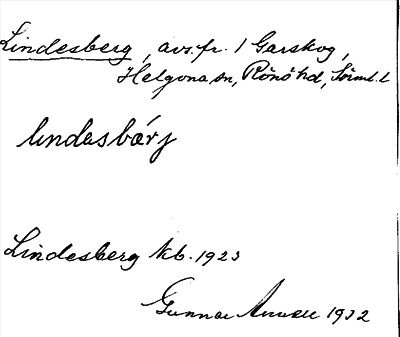 Lindesberg, avs. fr. 1 Garskog,
Helgona sn, Rönö hd, Sörml. l
lındasbærj
Lindesberg kb. 1923
Gunnar 1932